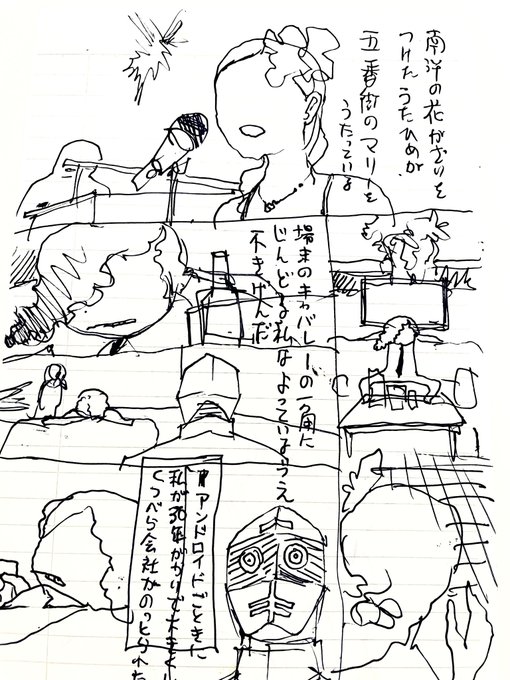 南洋の花かざりを
つけたうたひめが
五番街のマリーを
うたっている
場末のキャバレーの一角に
じんどる私はよっているうえ
不きげんだ
アンドロイドごときに
私が30年がかりで大きくし
くつべら会社がのっとられた